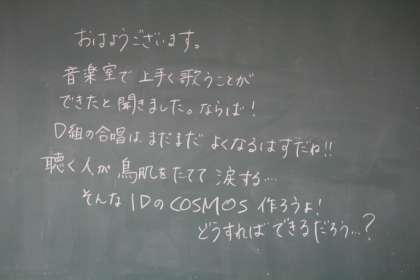 おはようございます。
音楽室で上手く歌うことが
できたと聞きました。ならば！
D組の合唱はまだまだよくなるはずだね!!
聴く人が鳥肌をたてて涙する…
そんな1DのCOSMOS作ろうよ！
どうすればできるだろう…？